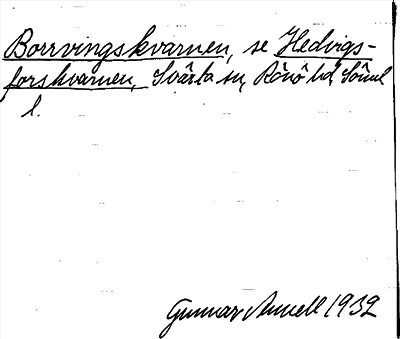 Borrvingskvarnen, se Hedvigs-
forskvarnen, Svärta sn, Rönö hd, Söml
l.
Gunnar Annell 1932